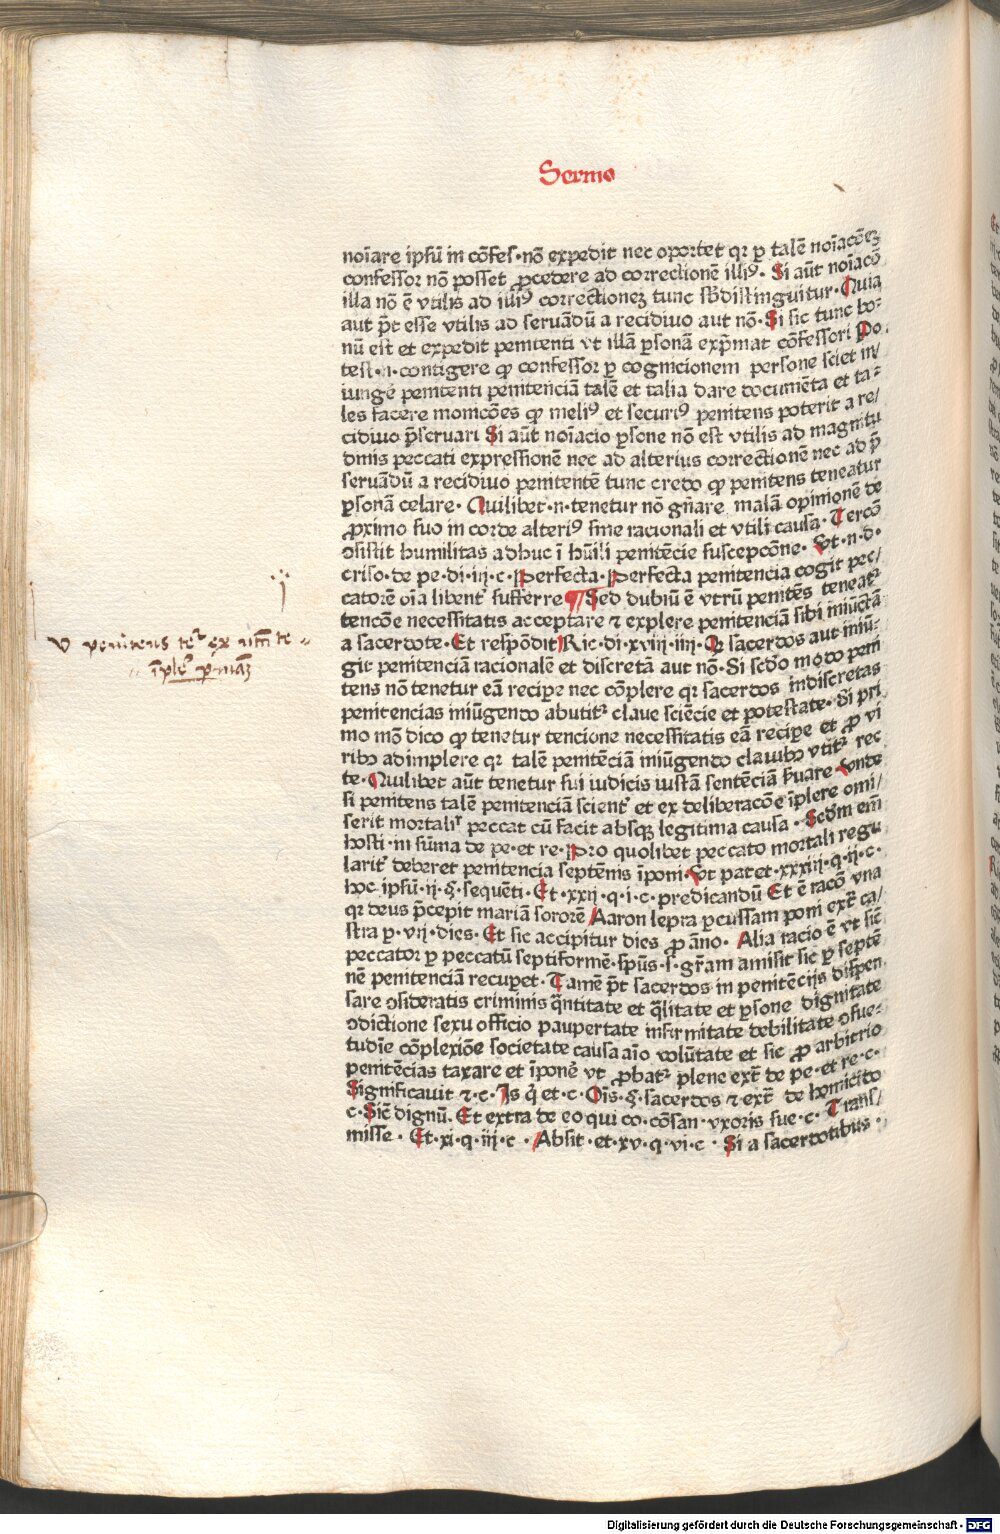 Sermo
noīare ip̄ſū in cōfeſ·nō expedit nec oportet qꝛ ꝑ talē noīacōeꝫ
confeſſor nō poſſet ꝓcedere ad correctionē illiꝰ· Si aūt noīacō
illa nō ē vtilis ad illiꝰ correctioneꝫ tunc ſb̄diſtinguitur· Quia
aut p̄t eſſe vtilis ad ſeruādū a recidiuo aut nō· Si ſic tunc bo⸗
nū eſt et expedit penitenti vt illā ꝑſonā exp̄mat cōfeſſori Po
teſt·n·contigere ꝙ confeſſor ꝑ cognicionem perſone ſciet in/
iunge penitenti penitenciā talē et talia dare documēta et ta⸗
les facere monicōes ꝙ meliꝰ et ſecuriꝰ penitens poterit a re/
cidiuo p̄ſeruari Si aūt noīacio ꝑſone nō eſt vtilis ad magnitu
dinis peccati expreſſionē nec ad alterius correctionē nec ad p̄
ſeruādū a recidiuo penitentē tunc credo ꝙ penitens teneatur
ꝑſonā celare· Quilibet·n·tenetur nō gn̄are malā opinionē de
ꝓximo ſuo in corde alteriꝰ ſine racionali et vtili cauſa· Tercō
ꝯſiſtit humilitas adhuc ī hūili penitēcie ſuſcepcōne· Vt·n·d·
criſo·de pe·di·iij·c·Perfecta·Perfecta penitencia cogit pec/
catorē oīa libent̄ ſufferre ¶ Sed dubiū ē vtrū penitēs teneat̄
tencōe neceſſitatis acceptare ⁊ explere penitenciā ſibi iniūctā
a ſacerdote· Et reſpōdit Ric·di·xviij·iiij· Qꝛ ſacerdos aut iniū⸗
git penitenciā racionalē et diſcretā aut nō· Si ſcd̄o modo peni
tens nō tenetur eā reciꝑe nec cōplere qꝛ ſacerdos indiſcretas
penitencias iniūgendo abutit̄ clave ſciēcie et poteſtate· Si pri
mo mō dico ꝙ tenetur tencione neceſſitatis eā reciꝑe et ꝓ vi
ribꝰ adimplere qꝛ talē penitēciā iniūgendo clauibꝰ vtit̄ rec
te· Quilibet aūt tenetur ſui iudicis iuſtā ſentēciā ſ̄uare Vnde
ſi penitens talē penitenciā ſcient̄ et ex deliberacōe īplere omi/
ſerit mortalit̄ peccat cū facit absqꝫ legitima cauſa · Scd̄m em̄
hoſti·in ſūma de pe·et re·Pro quolibet peccato mortali regu
larit̄ deberet penitencia ſeptēnis īponi·Vt patet·xxxiij·q·ij·c·
hoc ipſū·ij·§·ſequēti·Et·xxij·q·i·c·predicandū Et ē racō vna
qꝛ deus p̄cepit mariā ſororē Aaron lepra ꝑcuſſam poni ext̄ ca/
ſtra ꝑ·vij·dies· Et ſic accipitur dies ꝓ āno· Alia racio ē vt ſic̄
peccator ꝑ peccatū ſeptiformē·ſpūs·ſ·gr̄am amiſit ſic ꝑ ſeptē
nē penitenciā recuꝑet·Tamē p̄t ſacerdos in penitēcijs diſpen
ſare ꝯſideratis criminis q̄ntitate et q̄litate et ꝑſone dignitate
ꝯdictione ſexu officio paupertate infirmitate debilitate ꝯſue⸗
tudīe cōplexiōe ſocietate cauſa aīo volūtate et ſic ꝓ arbitrio
penitēcias taxare et īponē vt ꝓbat̄ plene ext̄ de pe·et re·c·
Significavit ⁊·c·Is q̇ et·c·Oīs·§·ſacerdos ⁊ ext̄ de homicido
c·Sic̄ dignū·Et extra de eo qui co·cōſan·vxoris ſue·c·Tranſ/
miſſe · Et·xi·q·iij·c · Abſit·et·xv·q·vi·c · Si a ſacerdotibus·